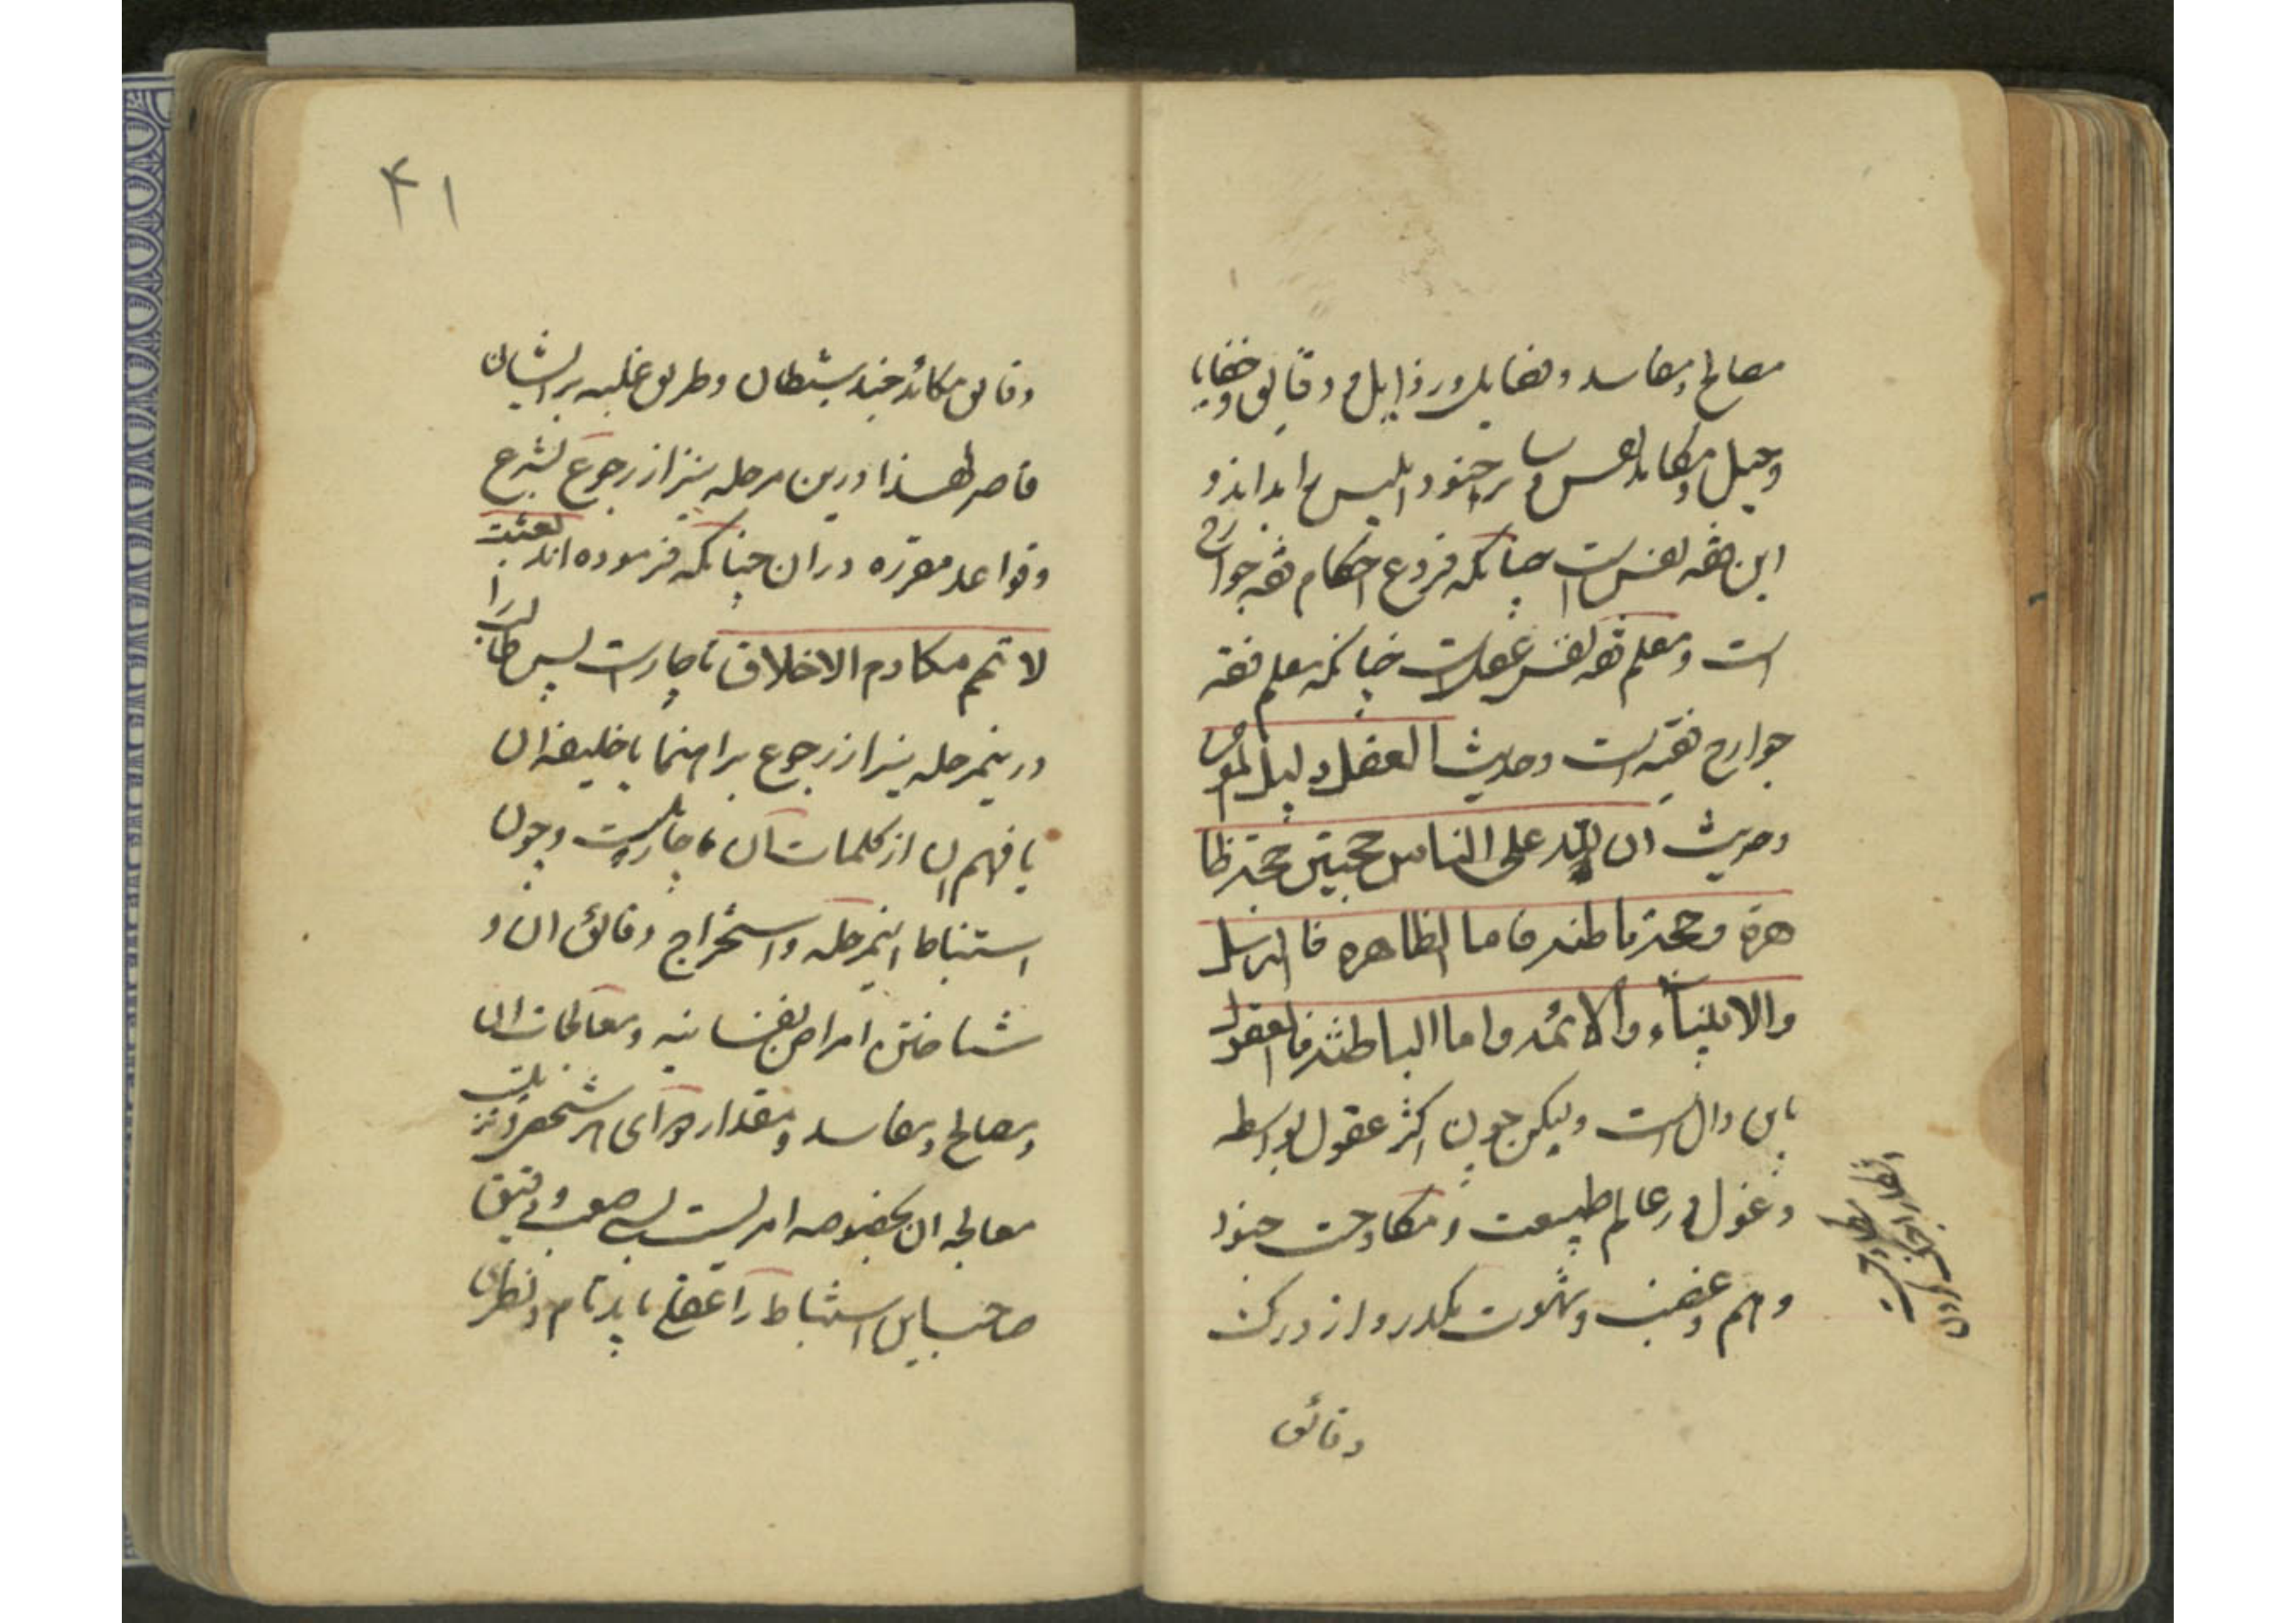 مصالح و مفاسد و فضایل و رذایل و دقایق و خفایا
و حیل و مکاید نفس و سایر جنود ابلیس را بداند و
این فقه نفس است چنانکه فروع احکام فقه جوارح
است و معلم فقه نفس عقل است چنانکه معلم فقه
جوارح فقیه است و حدیث العقل دلیل المؤمن
و حدیث ان لله علی الناس حجتین حجة ظا
هرة و حجة باطنة فاما الظاهرة فالرسل
والانبیاء والائمة واما الباطنة فالعقول
باین دال است ولیکن چون اکثر عقول بواسطه
وغول در عالم طبیعت و مکاوحت جنود
وهم و غضب و شهوت مکدر و از درک
دقائق
۴۱
دقایق مکائد جند شیطان و طریق غلبه بر ایشان
قاصر لهذا درین مرحله نیز از رجوع بشرع
و قواعد مقرره در آن چنانکه فرموده اند بعثت
لاتمم مکارم الاخلاق ناچار است پس طالب را
در ینمرحله نیز از رجوع براهنما یا خلیفه ان
یا فهم ان از کلمات آن ناچار است و چون
استنباط اینمرحله و استخراج دقائق ان و
شناختن امراض نفسانیه و معالجات ان
و مصالح و مفاسد و مقدار دوای هر شخص و
معالجه ان بخصوصه امریست بس صعب و دقیق
صاحب این استنباط را عقلی باید تام و نظری